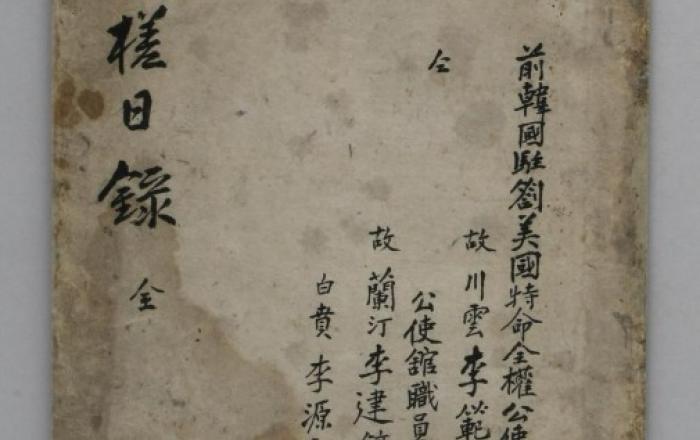 前韓國駐劄美國特命全權公使
故川雲李範
仝 公使舘職員
故蘭汀李建
白賁李源
槎日錄 全